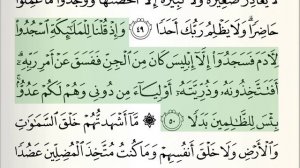 لَا يُغَادِرُ صَغِيرَةً وَلَا كَبِيرَةً إِلَّآ أَحْصَىٰهَا ۚ وَوَجَدُوا۟ مَا عَمِلُوا۟
حَاضِرًا ۗ وَلَا يَظْلِمُ رَبُّكَ أَحَدًا ٤٩ وَإِذْ قُلْنَا لِلْمَلَٰٓئِكَةِ ٱسْجُدُوا۟
لِأٓدَمَ فَسَجَدُوٓا۟ إِلَّآ إِبْلِيسَ كَانَ مِنَ ٱلْجِنِّ فَفَسَقَ عَنْ أَمْرِ رَبِّهِۦٓ ۗ
أَفَتَتَّخِذُونَهُۥ وَذُرِّيَّتَهُۥٓ أَوْلِيَآءَ مِن دُونِى وَهُمْ لَكُمْ عَدُوٌّۢ ۚ
بِئْسَ لِلظَّٰلِمِينَ بَدَلًا ٥٠ ۞ مَّآ أَشْهَدتُّهُمْ خَلْقَ ٱلسَّمَٰوَٰتِ
وَٱلْأَرْضِ وَلَا خَلْقَ أَنفُسِهِمْ وَمَا كُنتُ مُتَّخِذَ ٱلْمُضِلِّينَ عَضُدًا